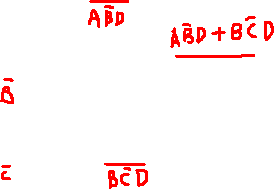 AB̅D
AB̅D + BC̅D
B̅
C̅
BC̅D